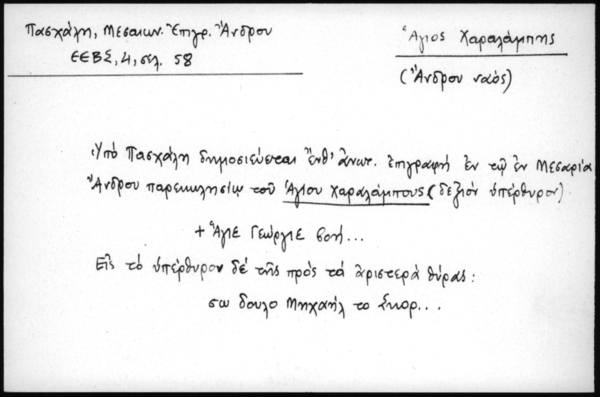 Πασχάλη, Μεσαιων. Ἐπιγρ. Ἄνδρου
ΕΕΒΣ, 4, σελ. 58
Ἅγιος Χαραλάμπης
(Ἄνδρου ναός)
Ὑπό Πασχάλη δημοσιεύεται ἔνθ' ἀνωτ. ἐπιγραφή ἐν τῷ ἐν Μεσαρία
Ἄνδρου παρεκκλησίῳ τοῦ Ἁγίου Χαραλάμπους (δεξιόν ὑπέρθυρον)
+ Ἅγιε Γεώργιε βοή...
Εἰς τό ὑπέρθυρον δέ τῆς πρός τά ἀριστερά θύρας:
σω δουλο Μηχαήλ το Σκορ...